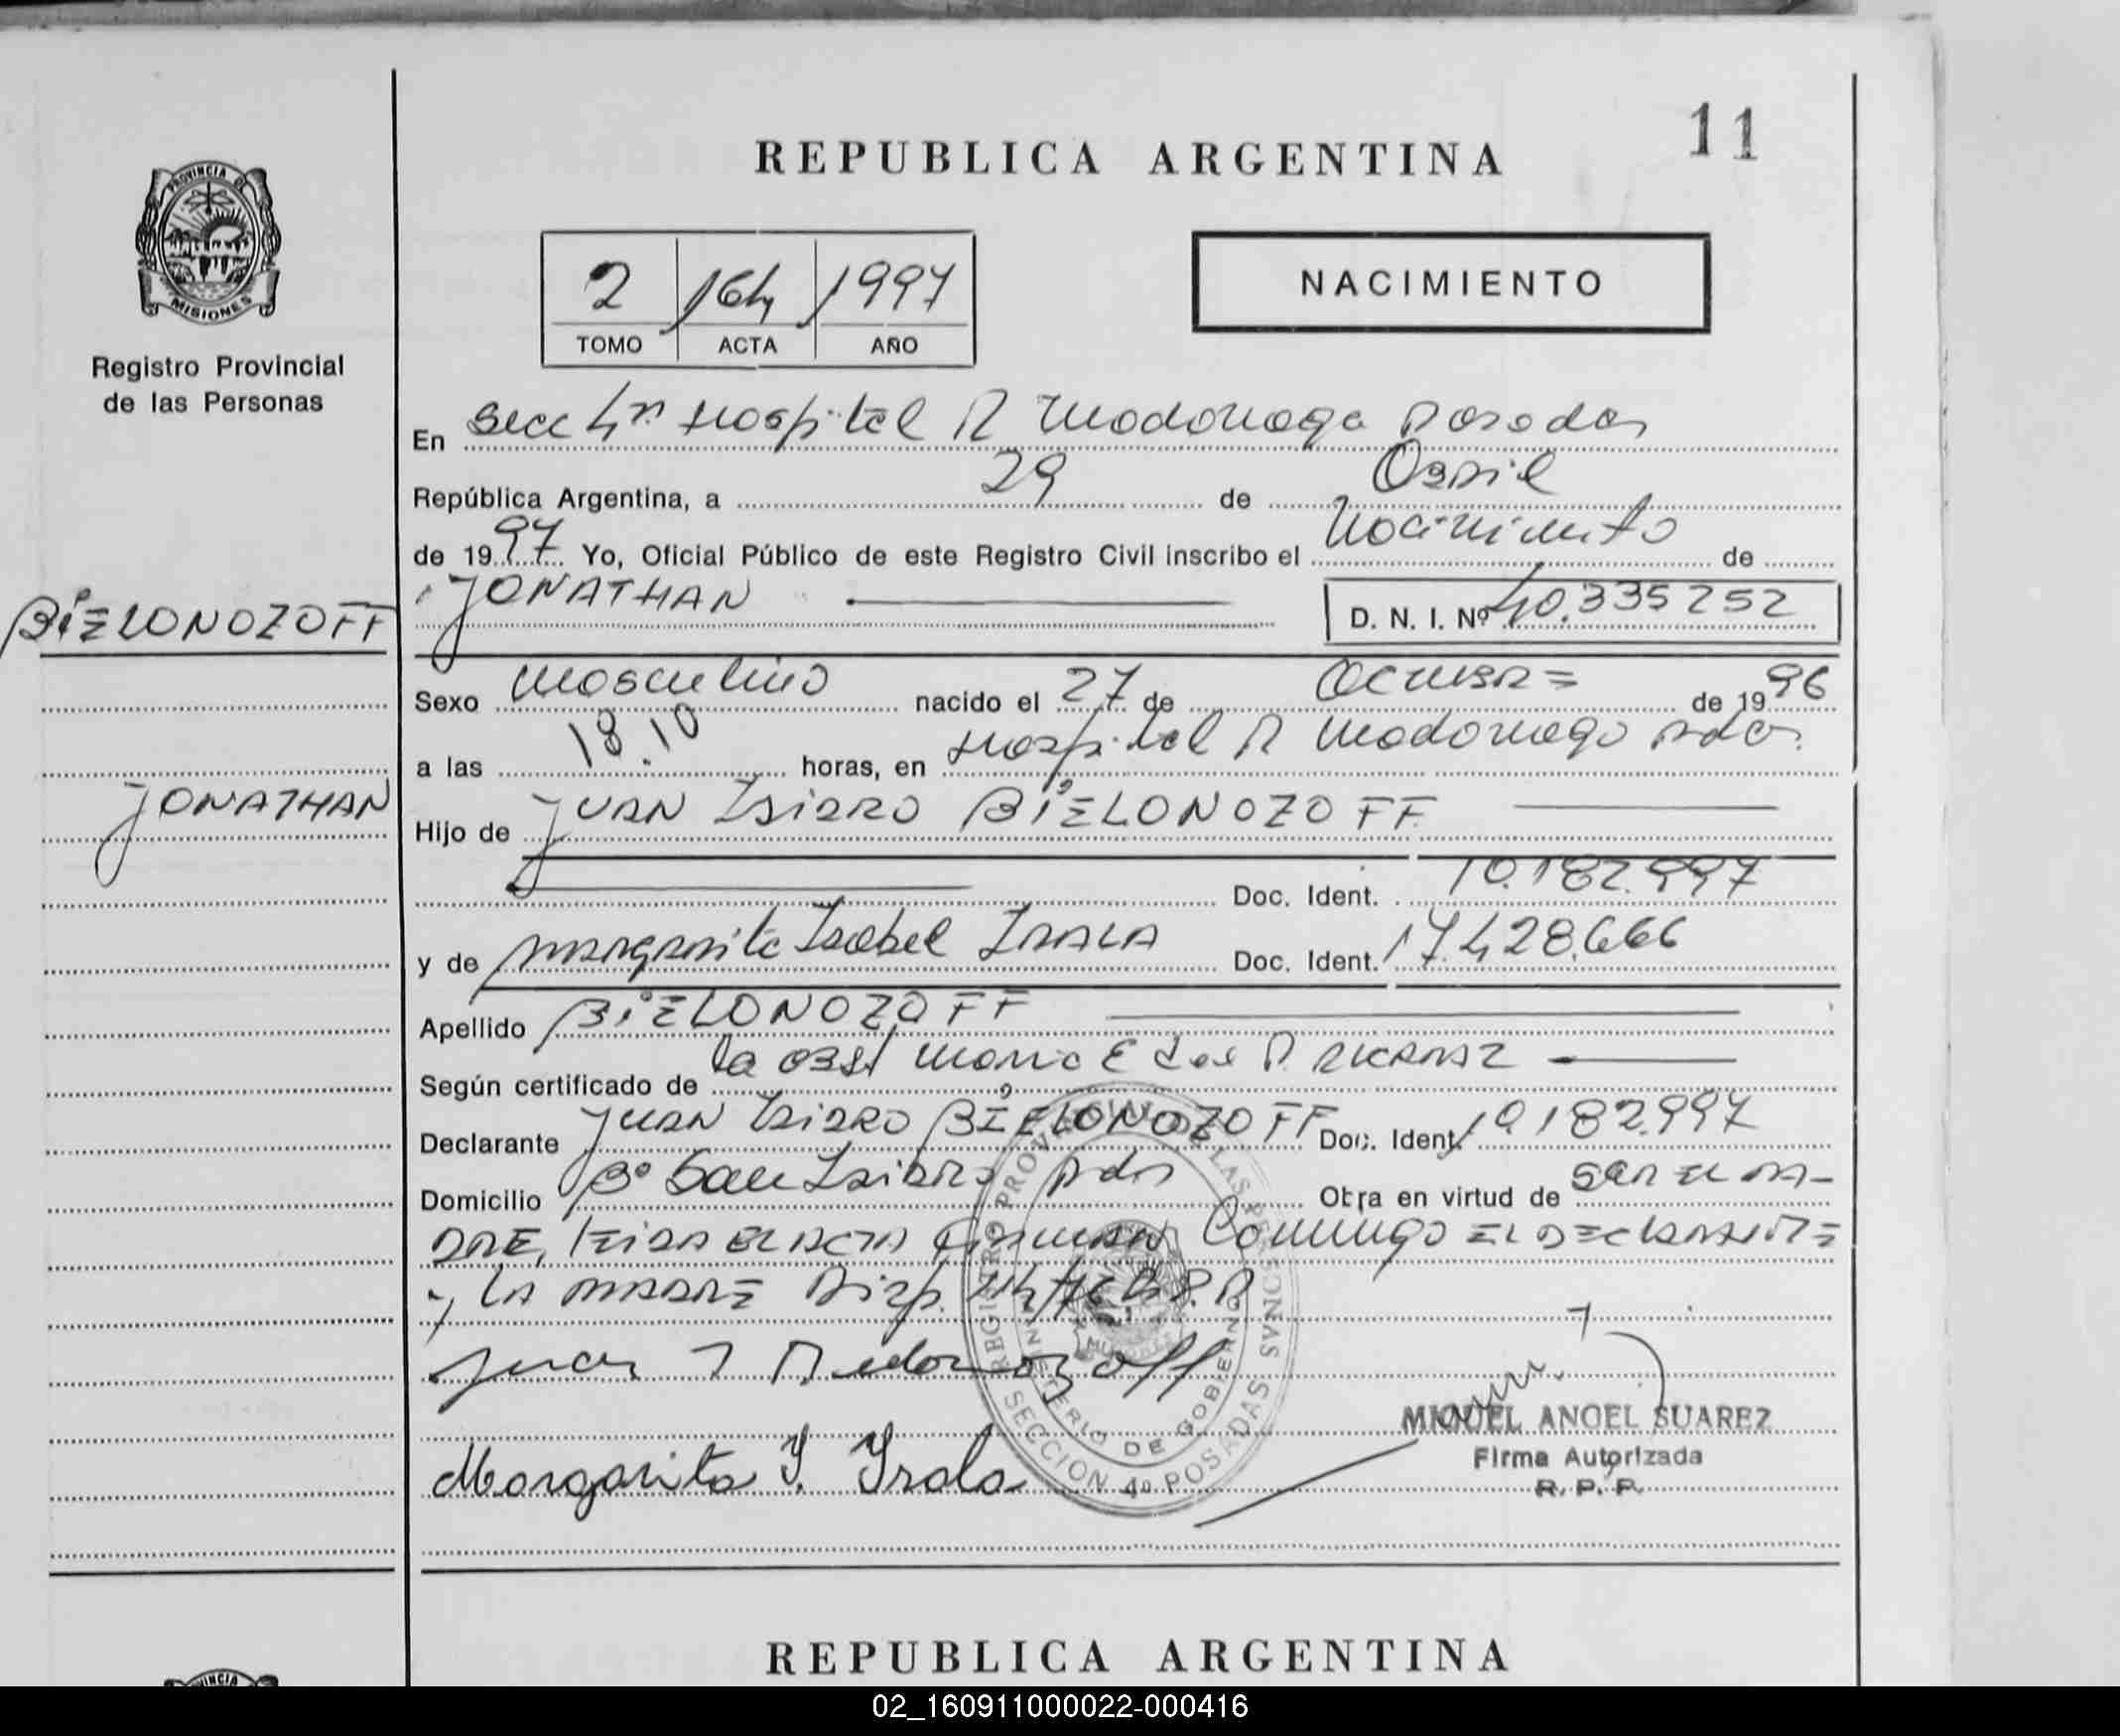 11
REPUBLICA ARGENTINA
PROVINCIA DE
MISIONES
Registro Provincial
de las Personas
2 164 1997
TOMO ACTA AÑO
NACIMIENTO
En Secc 4ta Hospital R Madariaga Posadas
República Argentina, a 29 de Abril
de 1997 Yo, Oficial Público de este Registro Civil inscribo el Nacimiento de
JONATHAN
D. N. I. Nº 40.335252
BIELONOZOFF
JONATHAN
Sexo Masculino nacido el 27 de OCTUBRE de 1996
a las 18.10 horas, en Hospital R Madariaga Pdas.
Hijo de JUAN ISIDRO BIELONOZOFF
Doc. Ident. 10.182.997
y de Margarita Isabel IRALA Doc. Ident. 17.428.666
Apellido BIELONOZOFF
Según certificado de la Obst Maria E
Declarante JUAN ISIDRO BIELONOZOFF Doc. Ident. 10182.997
Domicilio Bº San Isidro Pdas Obra en virtud de SER EL PA-
DRE, leida el acta firman Conmigo EL DECLARANTE
y LA MADRE Disp.
Juan I Bielonozoff
Margarita Y. Yrala
REGISTRO PROVINCIAL DE LAS PERSONAS
MINISTERIO DE GOBIERNO
SECCION 4º POSADAS
MIGUEL ANGEL SUAREZ
Firma Autorizada
R. P. P.
REPUBLICA ARGENTINA
02_160911000022-000416